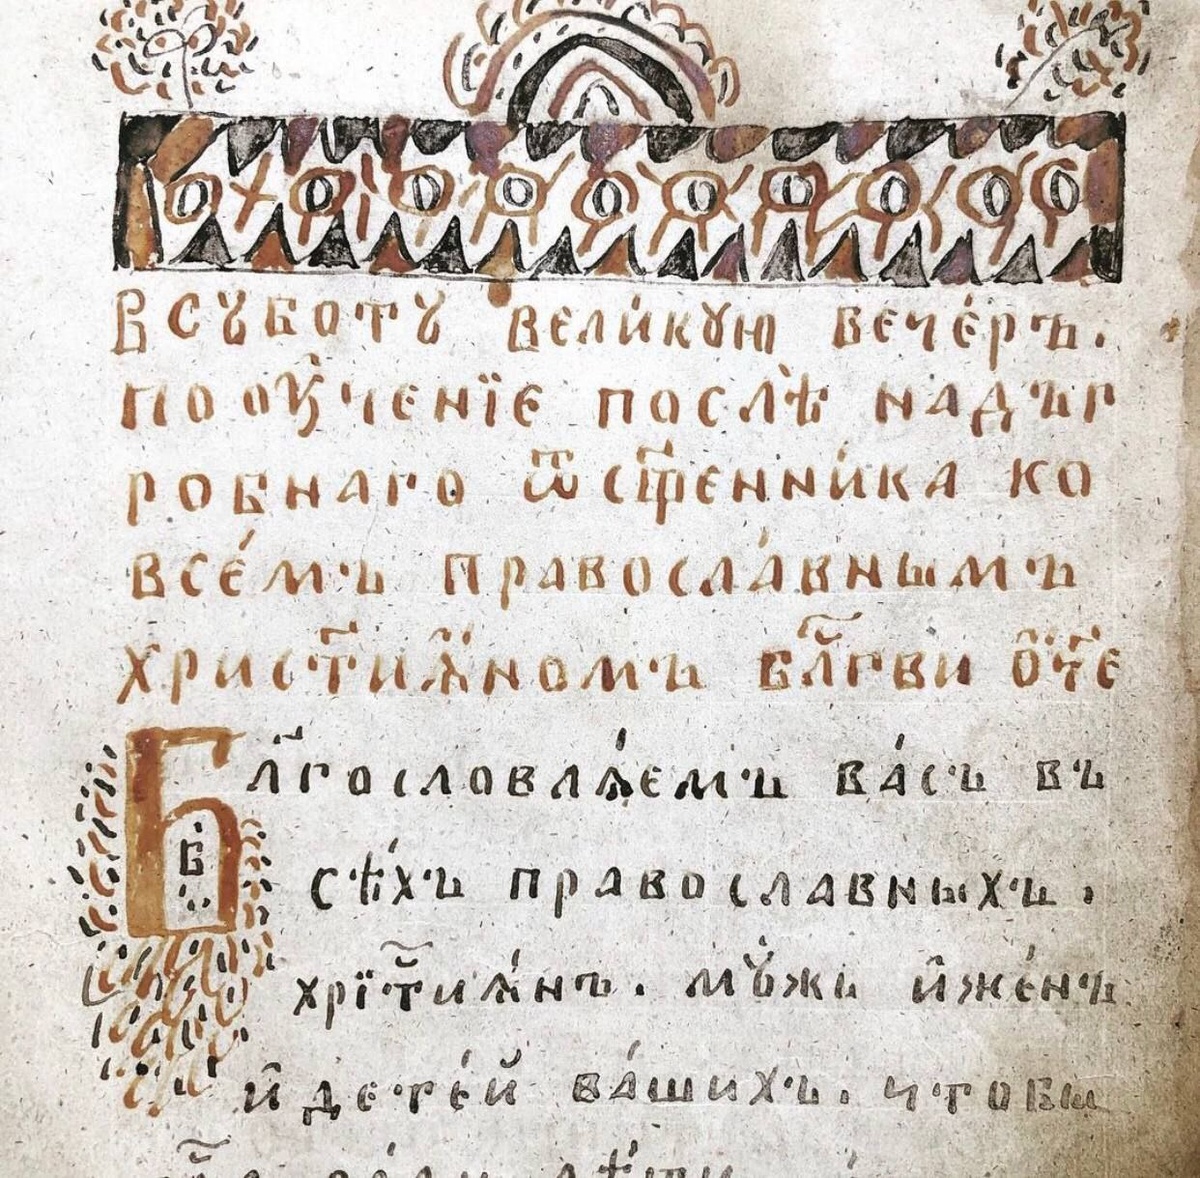 В Сꙋботꙋ вели́кꙋю вече́ръ.
поᲂу҆че́нїе послѣ̀ надъг
робнаго ѿ сщ҃е́нни́ка ко
всє́мъ правосла́внымъ
христ҃иѧ́номъ бл҃гви ѻ҆́ч҃е
Бл҃гословлѧ́емъ ва́съ въ
сѣ́хъ православныхъ.
хрїст҃иѧ́нъ. мꙋ́жъ и҆ же́нъ
и҆ дете́й ва́шихъ. чтобы